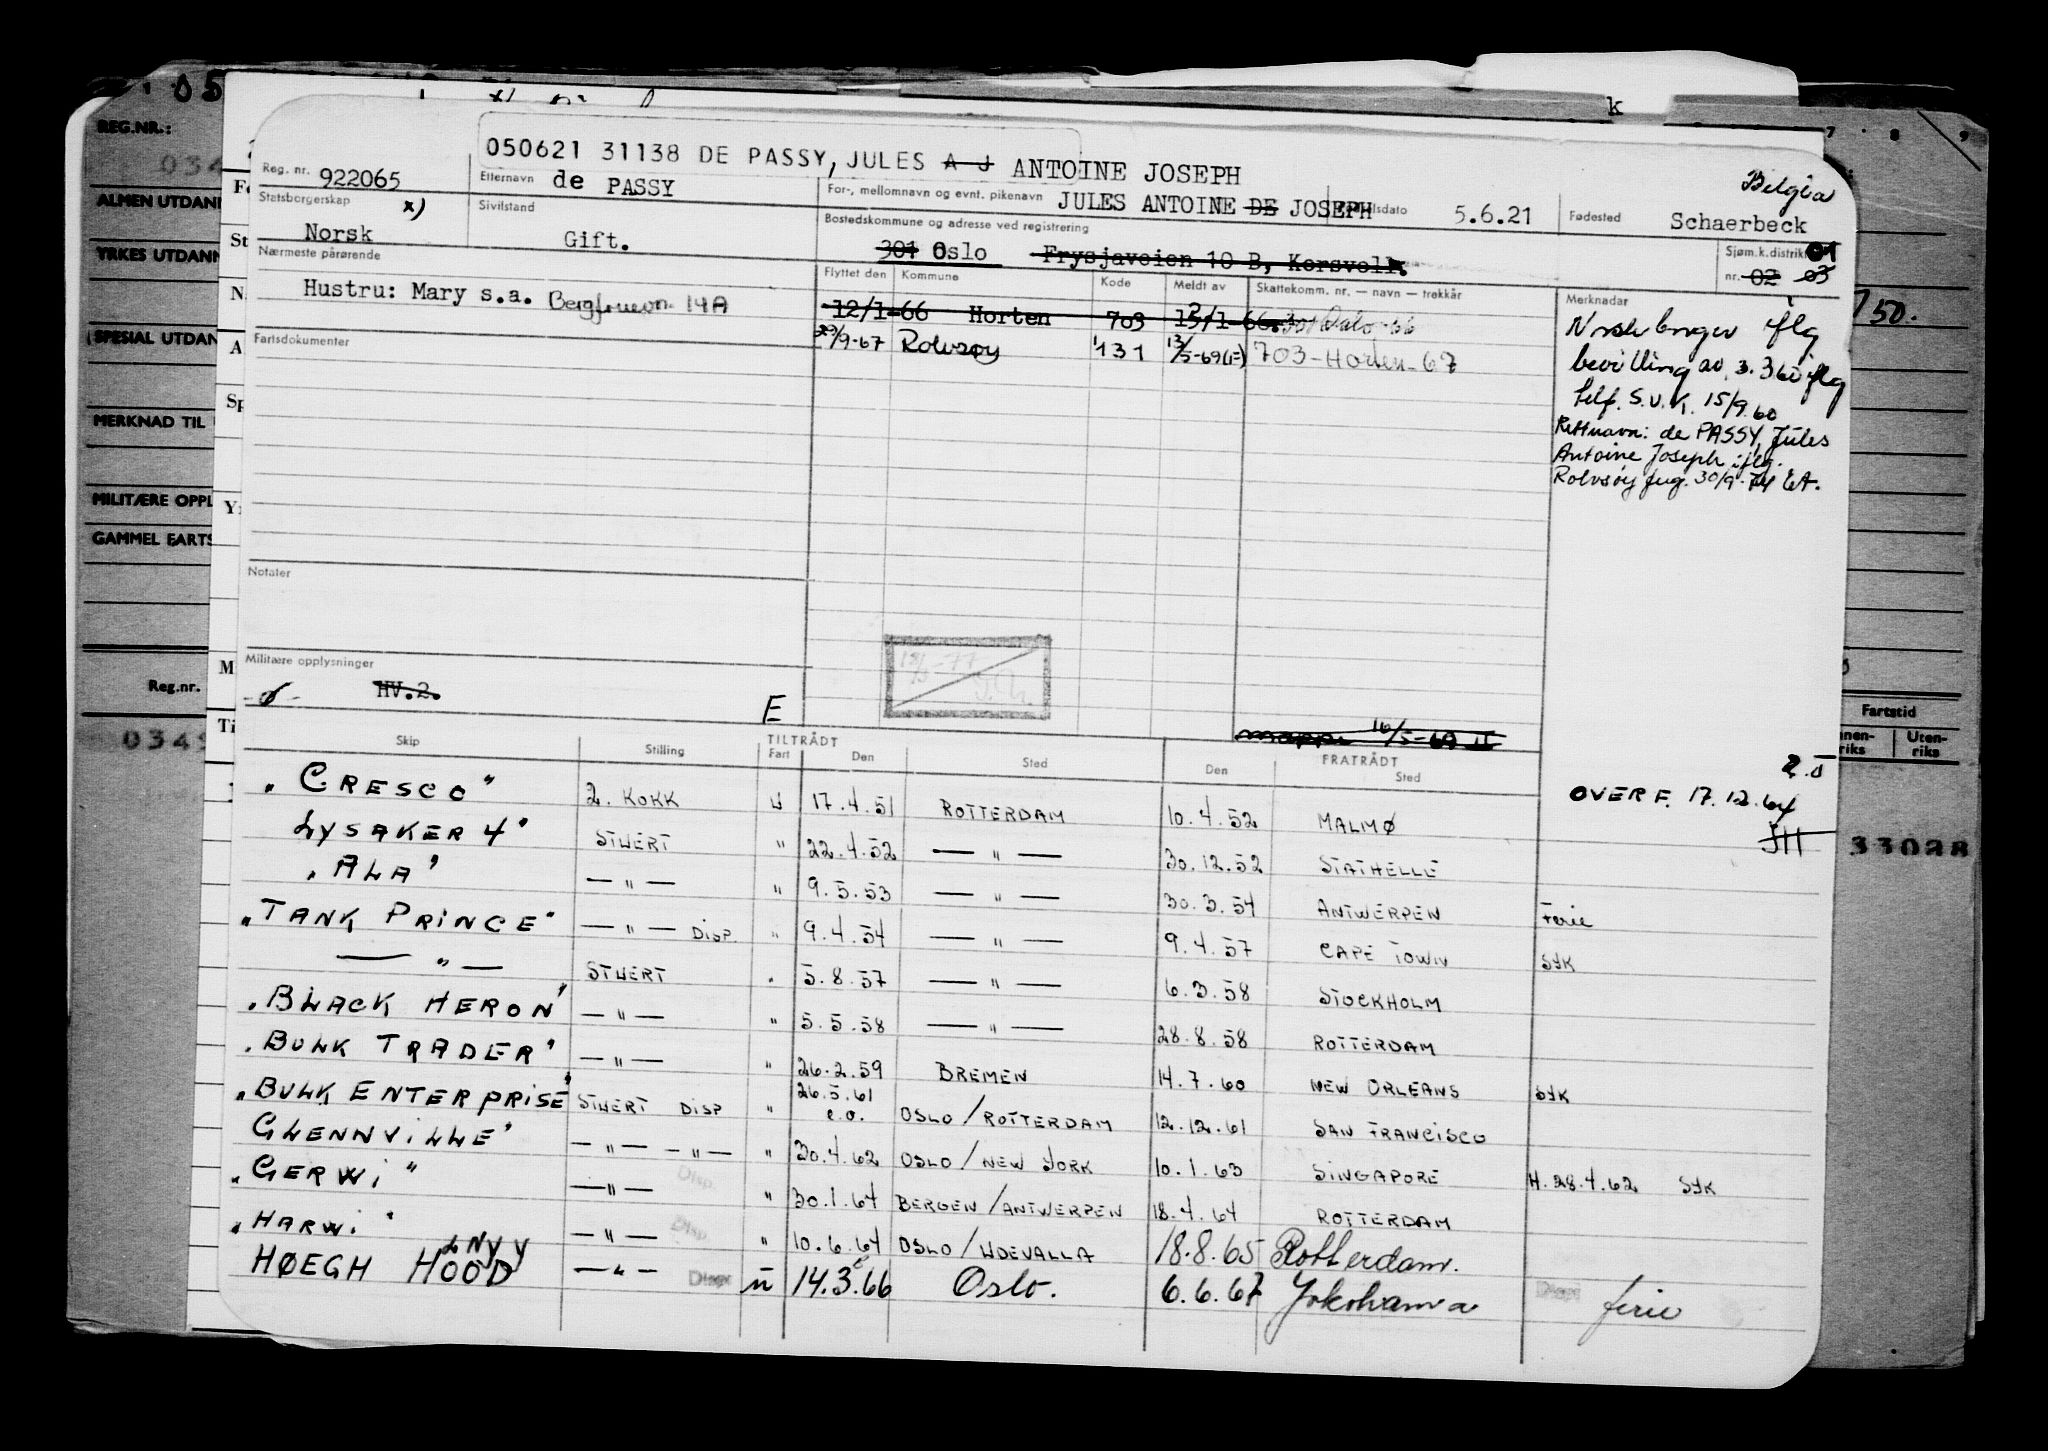 050621 31138 DE PASSY, JULES A J ANTOINE JOSEPH
Reg. nr. 922065 Etternavn de PASSY For-, mellomnavn og evnt. pikenavn JULES ANTOINE DE JOSEPH lsdato 5.6.21 Fødested Schaerbeck Belgia
Statsborgerskap x) Norsk Sivilstand Gift. Bostedskommune og adresse ved registrering 301 Oslo Frysjaveien 10 B, Korsvoll. Sjøm.k.distrikt nr. 02 03 01
Nærmeste pårørende
Hustru: Mary s.a. 14A
Flyttet den Kommune Kode Meldt av Skattekomm. nr. — navn — trekkår Merknadar
12/1-66 Horten 703 301 Oslo 66
29/9-67 Rolvsøy 131 13/5-69 703-Horten-67
Fartsdokumenter
Norsk borger iflg
bevilling av 3.3 60 iflg
telf. S.U.K. 15/9.60
Rett navn: de PASSY, Jules
Antoine Joseph iflg.
Rolvsøy fug. 30/9-74
Notater
Militære opplysninger
-ø- HV.2. E
mappe 16/5-69
2.5
OVERF. 17.12.64
Skip Stilling TILTRÅDT Fart Den Sted FRATRÅDT Den Sted
"CRESCO" 2. KOKK U 17.4.51 ROTTERDAM 10.4.52 MALMØ
LYSAKER 4" STUERT " 22.4.52 — " — 30.12.52 STATHELLE
"ALA" — " — " 9.5.53 — " — 30.3.54 ANTWERPEN Ferie
"TANK PRINCE" — " — DISP. " 9.4.54 — " — 9.4.57 CAPE TOWN SYK
— " — STUERT " 5.8.57 — " — 6.3.58 STOCKHOLM
"BLACK HERON" — " — " 5.5.58 — " — 28.8.58 ROTTERDAM
"BULK TRADER" — " — " 26.2.59 BREMEN 14.7.60 NEW ORLEANS SYK
"BULK ENTERPRISE" STUERT DISP " 26.5.61 e.o. OSLO/ROTTERDAM 12.12.61 SAN FRANCISCO
GLENNVILLE" — " — — " — " 30.4.62 OSLO/NEW YORK 10.1.63 SINGAPORE H. 28.4.62 SYK
"GERWI" — " — Disp. " 30.1.64 BERGEN/ANTWERPEN 18.4.64 ROTTERDAM
"HARWI" — " — Disp " 10.6.64 OSLO/UDEVALLA 18.8.65 Rotterdam.
HØEGH HOOD — " — Disp u 14.3.66 Oslo. 6.6.67 Yokohama Disp ferie
REG.NR.:
ALMEN UTDANN
YRKES UTDANN
SPESIAL UTDAN
MERKNAD TIL
MILITÆRE OPPL
GAMMEL FARTS
Reg.nr.
Fartstid
Uten-
riks
33028